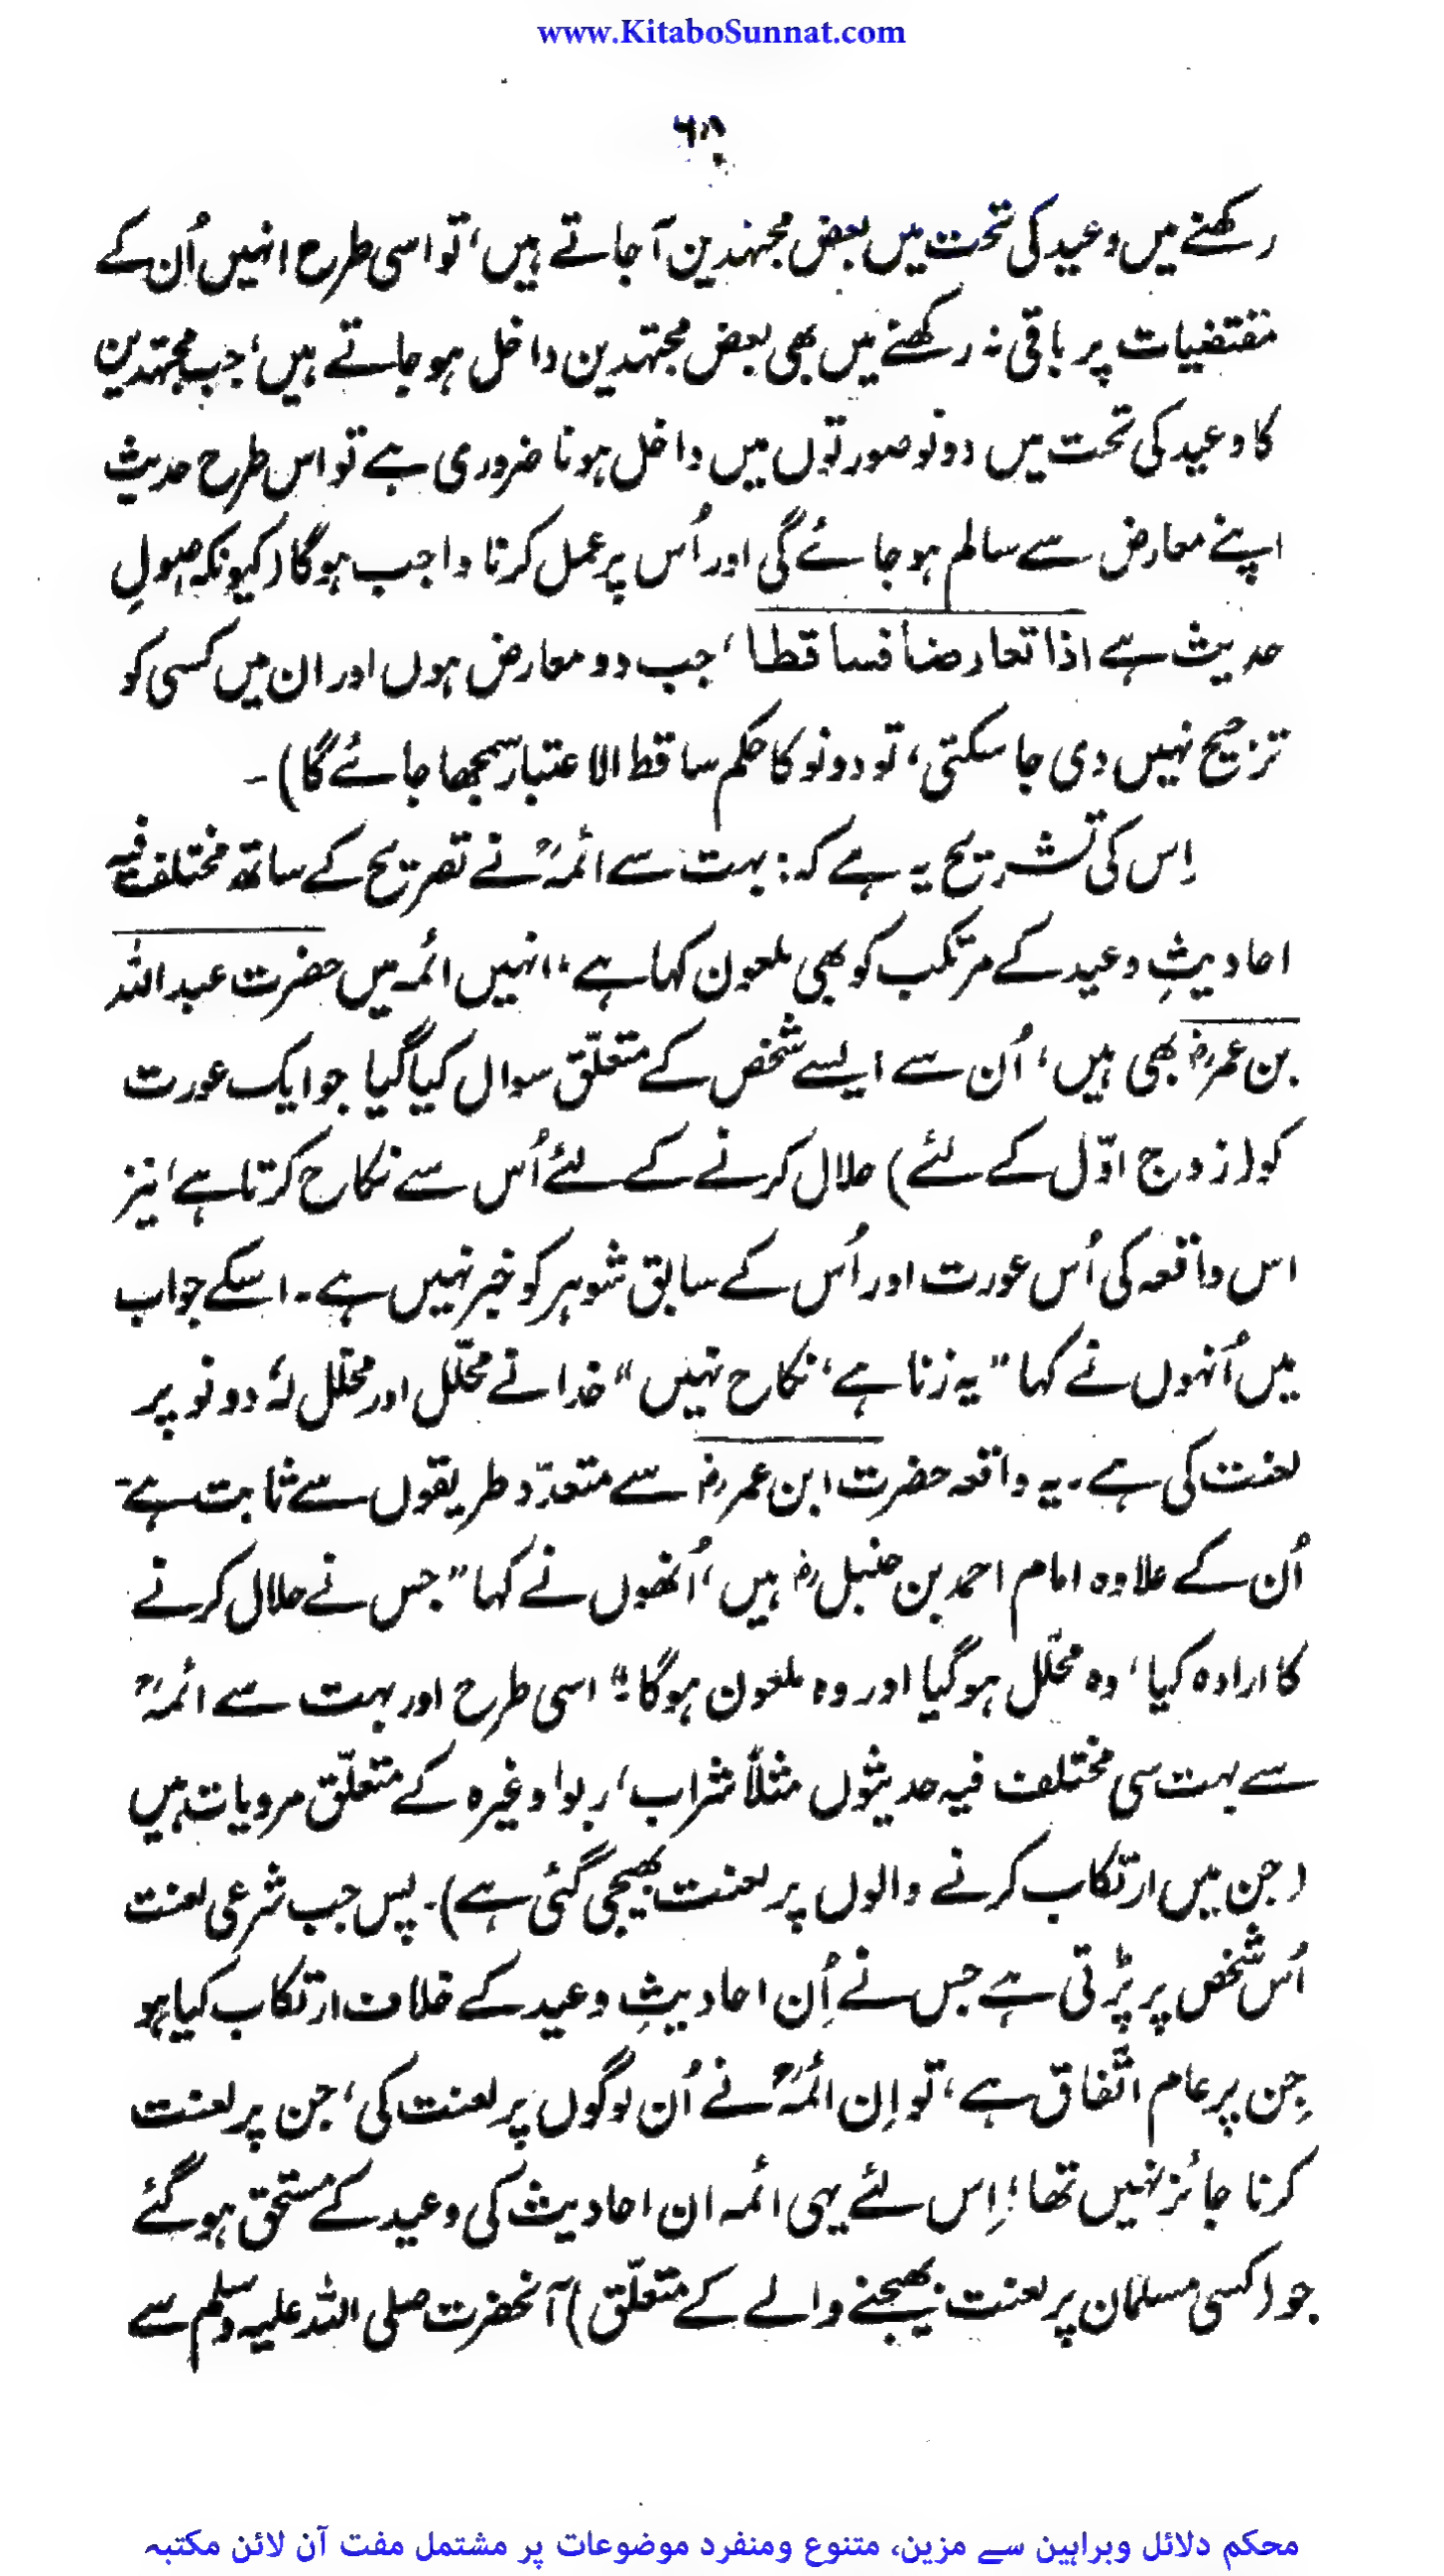 www.KitaboSunnat.com
۶۸
رکھنے میں وعید کی تحت میں بعض مجتہدین آ جاتے ہیں، تو اسی طرح انہیں اُن کے
مقتضیات پر باقی نہ رکھنے میں بھی بعض مجتہدین داخل ہو جاتے ہیں، جب مجتہدین
کا وعید کی تحت میں دونو صورتوں میں داخل ہونا ضروری ہے تو اس طرح حدیث
اپنے معارض سے سالم ہو جائے گی اور اُس پر عمل کرنا واجب ہوگا (کیونکہ اصولِ
حدیث ہے اذا تعارضا فساقطا، جب دو معارض ہوں اور ان میں کسی کو
ترجیح نہیں دی جا سکتی، تو دونو کا حکم ساقط الاعتبار سمجھا جائے گا)۔
اِس کی تشریح یہ ہے کہ: بہت سے ائمہؒ نے تصریح کے ساتھ مختلف فیہ
احادیثِ وعید کے مرتکب کو بھی ملعون کہا ہے، انہیں ائمہ میں حضرت عبداللہ
بن عمرؓ بھی ہیں، اُن سے ایسے شخص کے متعلّق سوال کیا گیا جو ایک عورت
کو (زوج اوّل کے لئے) حلال کرنے کے لئے اُس سے نکاح کرتا ہے، نیز
اس واقعہ کی اُس عورت اور اُس کے سابق شوہر کو خبر نہیں ہے۔ اسکے جواب
میں اُنہوں نے کہا ”یہ زنا ہے، نکاح نہیں“ خدا نے محلّل اور محلّل لہٗ دونو پر
لعنت کی ہے۔ یہ واقعہ حضرت ابن عمرؓ سے متعدّد طریقوں سے ثابت ہے۔
اُن کے علاوہ امام احمد بن حنبلؓ ہیں، اُنھوں نے کہا ”جس نے حلال کرنے
کا ارادہ کیا، وہ محلّل ہوگیا اور وہ ملعون ہوگا“؛ اسی طرح اور بہت سے ائمہؒ
سے بہت سی مختلف فیہ حدیثوں مثلاً شراب، ربوا وغیرہ کے متعلّق مرویات ہیں
(جن میں ارتکاب کرنے والوں پر لعنت بھیجی گئی ہے)۔ پس جب شرعی لعنت
اُس شخص پر پڑتی ہے جس نے اُن احادیثِ وعید کے خلاف ارتکاب کیا ہو
جِن پر عام اتّفاق ہے، تو اِن ائمہؒ نے اُن لوگوں پر لعنت کی، جن پر لعنت
کرنا جائز نہیں تھا؛ اِس لئے یہی ائمہ ان احادیث کی وعید کے مستحق ہوگئے
جو (کسی مسلمان پر لعنت بھیجنے والے کے متعلّق) آنحضرت صلی اللہ علیہ وسلم سے
محکم دلائل وبراہین سے مزین، متنوع ومنفرد موضوعات پر مشتمل مفت آن لائن مکتبہ